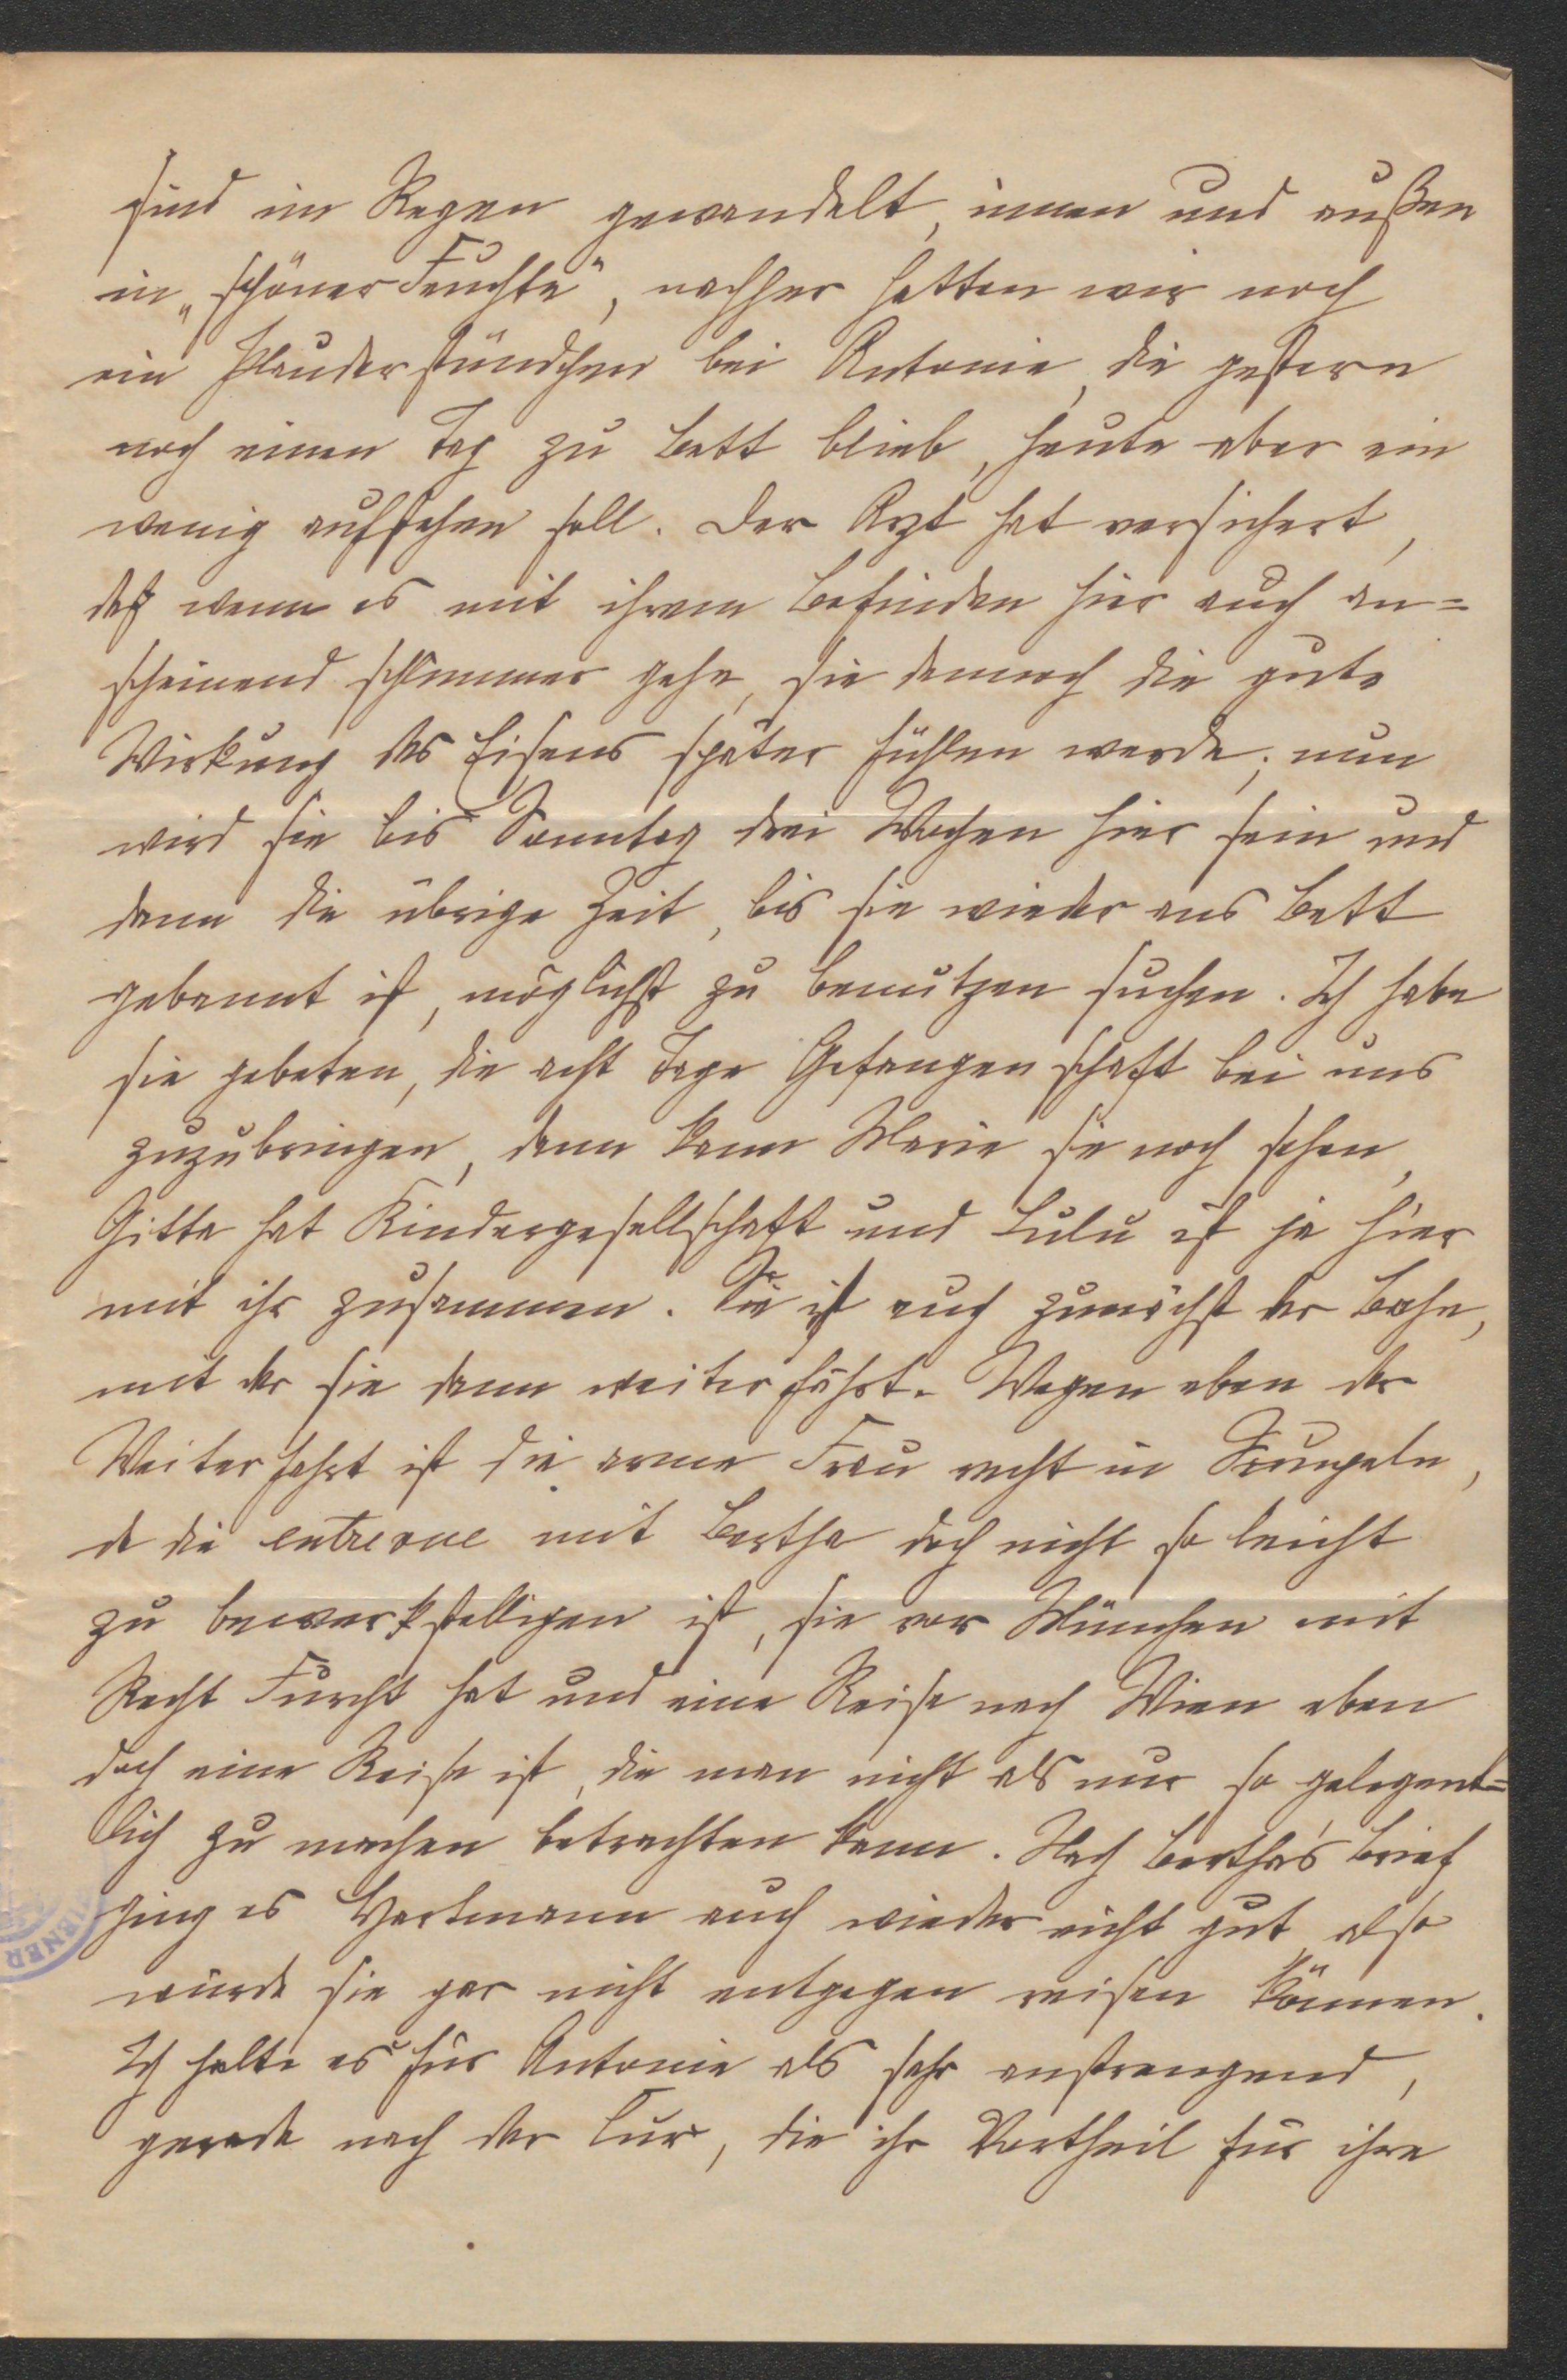 sind im Regen gewandelt, innen und außen
in „schöner Feuchte", nachher hatten wir noch
ein Plauderstündchen bei Antonie, die gestern
noch einen Tag zu Bett blieb, heute aber ein
wenig aufstehen soll. Der Arzt hat versichert,
daß wenn es mit ihrem Befinden hier auch an=
scheinend schlimmer gehe, sie dennoch die gute
Wirkung des Eisens später fühlen werde; nun
wird sie bis Sonntag drei Wochen hier sein und
dann die übrige Zeit, bis sie wieder ans Bett
gebannt ist, möglichst zu benutzen suchen. Ich habe
sie gebeten, die acht Tage Gefangenschaft bei uns
zuzubringen, dann kann Marie sie noch sehen,
Gitta hat Kindergesellschaft und Lulu ist ja hier
mit ihr zusammen. Sie ist auch zunächst der Bahn,
mit der sie dann weiter fährt. Wegen eben der
Weiterfahrt ist die arme Frau recht in Scrupeln,
da die entrevue mit Bertha doch nicht so leicht
zu bewerkstelligen ist, sie vor München mit
Recht Furcht hat und eine Reise nach Wien eben
doch eine Reise ist, die man nicht als nur so gelegent=
lich zu machen betrachten kann. Nach Bertha's Brief
ging es Hartmann auch wieder nicht gut, also
würde sie gar nicht entgegen reisen können.
Ich halte es für Antonie als sehr anstrengend,
gerade nach der Cur, die ihr Vortheil für ihre
IENER